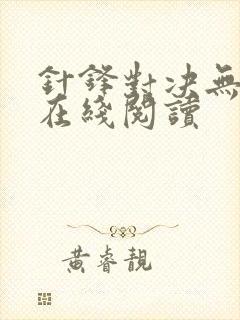 針鋒對决無
在綫閱讀
黃睿靚